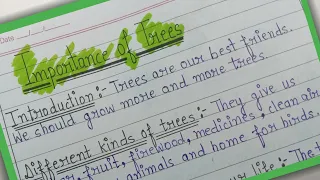 Date
Importance of Trees
Introduction:- Trees are our best friends.
We should grow more and more trees.
Different kinds of trees:- They give us
fruit, firewood, medicines, clean air
animals and home for birds.
life :- The